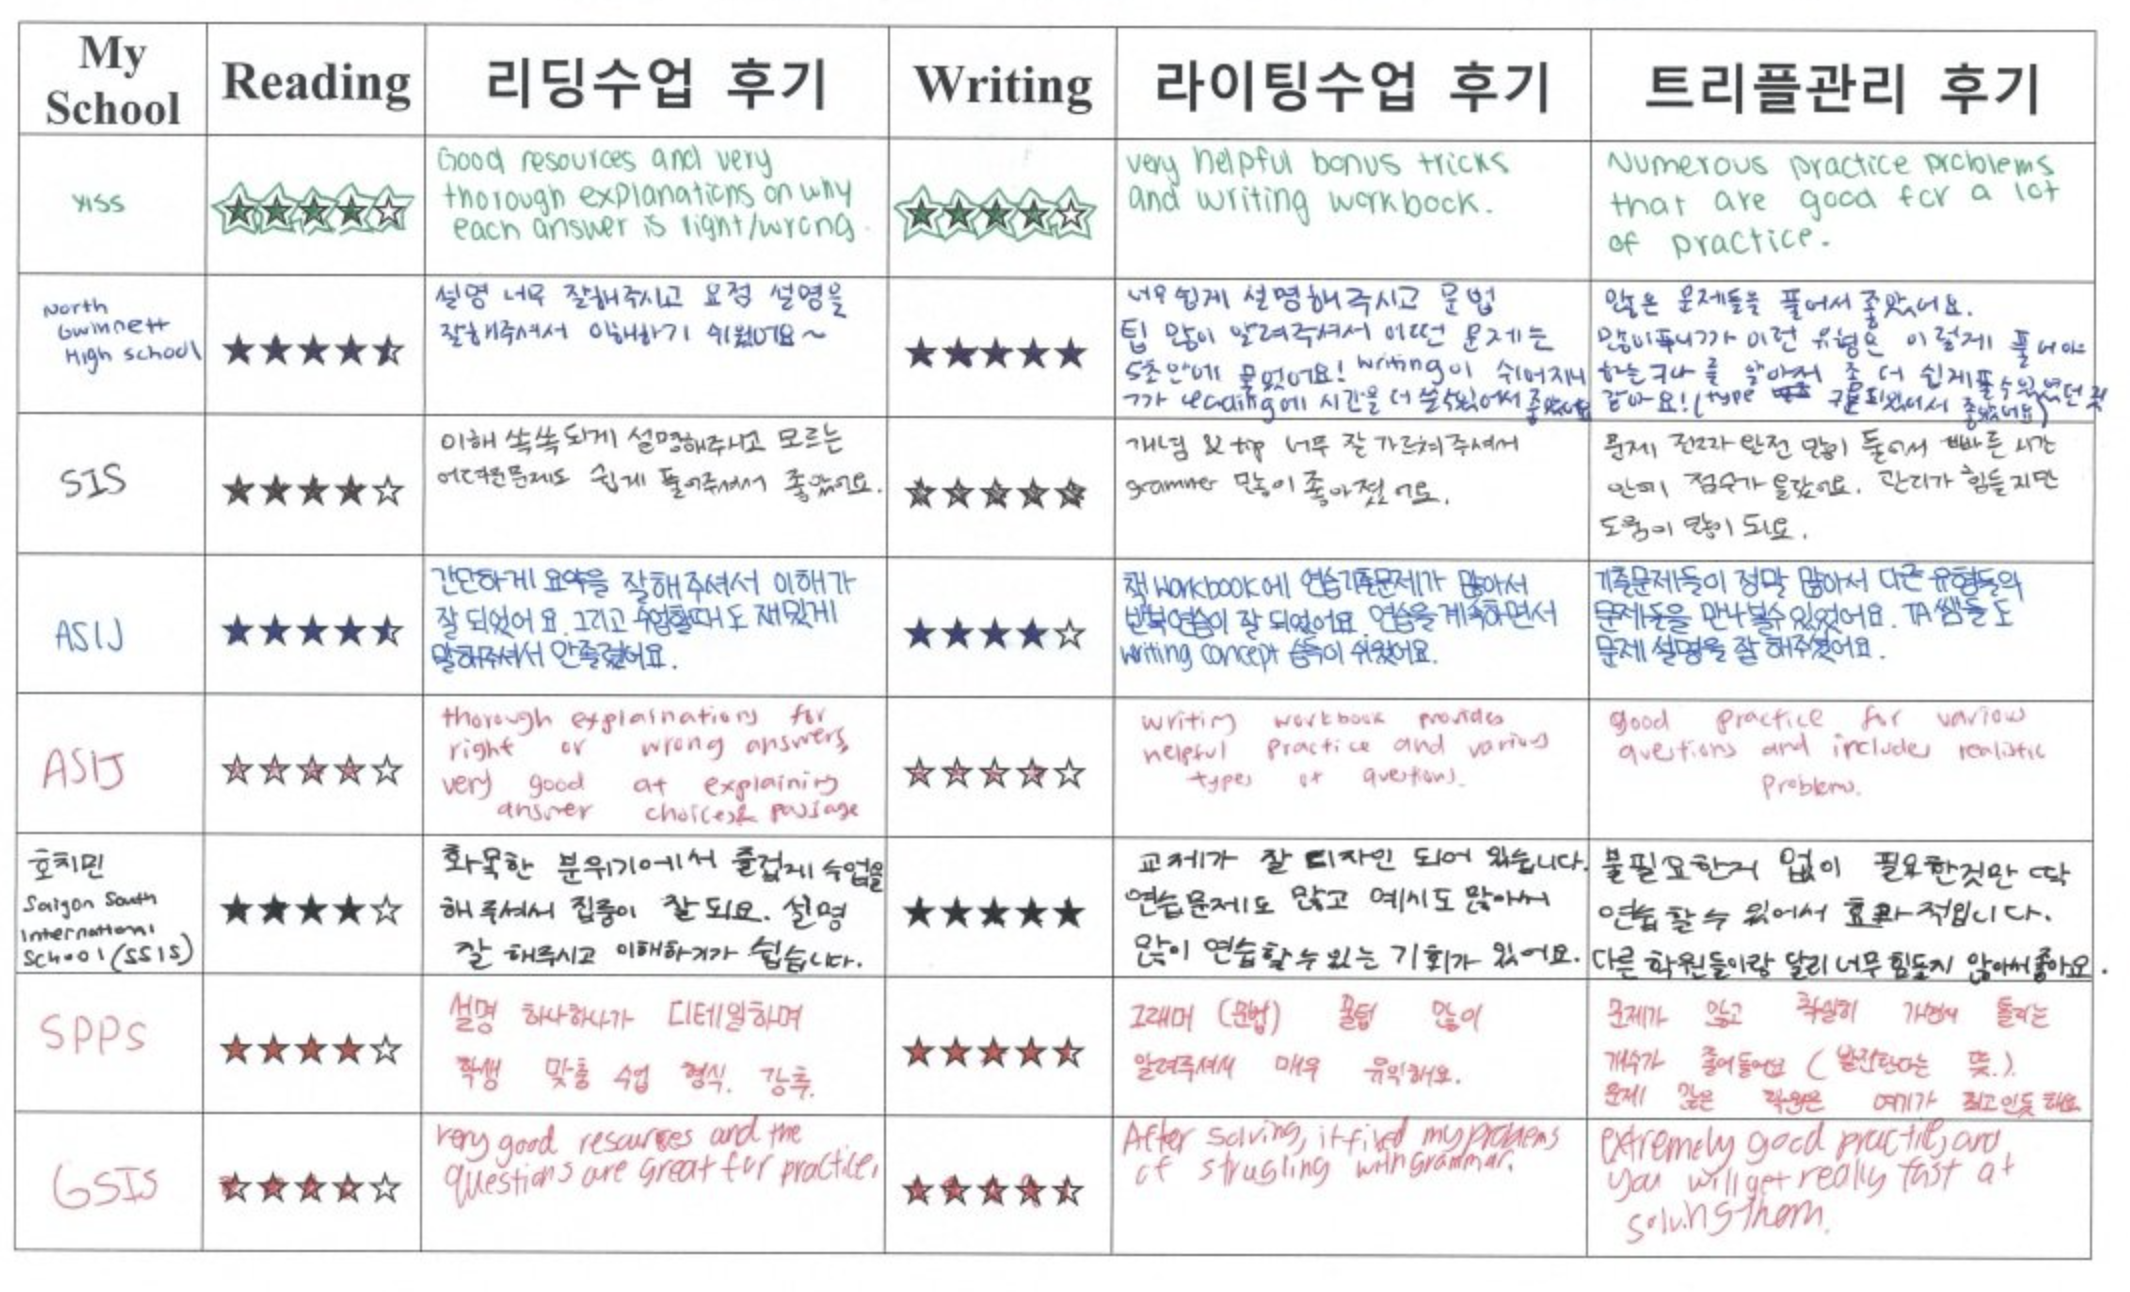 My School
Reading
리딩수업 후기
Writing
라이팅수업 후기
트리플관리 후기
YISS
Good resources and very
thorough explanations on why
each answer is right/wrong.
very helpful bonus tricks
and writing workbook.
Numerous practice problems
that are good for a lot
of practice.
North
Gwinnett
High school
설명 너무 잘해주시고 요점 설명을
잘해주셔서 이해하기 쉬웠어요~
너무 쉽게 설명해주시고 문법
팁 많이 알려주셔서 어떤 문제는
5초안에 풀었어요! writing이 쉬어지니
까 reading에 시간을 더 쓸수있어서 좋았어요
많은 문제들을 풀어서 좋았어요.
많이푸니까 이런 유형은 이렇게 풀어야
하는구나 를 알아서 좀 더 쉽게풀수있었던 것
같아요! (type 구분되있어서 좋았어요)
SIS
이해 쏙쏙 되게 설명해주시고 모르는
어려운문제도 쉽게 풀어주셔서 좋았어요.
개념 & tip 너무 잘 가르쳐주셔서
grammer 많이 좋아졌어요.
문제 진짜 완전 많이 풀어서 빠른 시간
안에 점수가 올랐어요. 관리가 힘들지만
도움이 많이 되요.
ASIJ
간단하게 요약을 잘해주셔서 이해가
잘 되었어요. 그리고 수업할때도 재밌게
말해주셔서 안졸렸어요.
책 workbook에 연습기출문제가 많아서
반복연습이 잘 되었어요. 연습을 계속하면서
writing concept 습득이 쉬웠어요.
기출문제들이 정말 많아서 다른 유형들의
문제들을 만나볼수있었어요. TA쌤들도
문제 설명을 잘 해주셨어요.
ASIJ
thorough explainations for
right or wrong answers,
very good at explaining
answer choices & passage
writing workbook provides
helpful practice and various
types of questions.
good practice for various
questions and includes realistic
problems.
호치민
Saigon South
International
School (SSIS)
화목한 분위기에서 즐겁게 수업을
해주셔서 집중이 잘 되요. 설명
잘 해주시고 이해하기가 쉽습니다.
교제가 잘 디자인 되어 있습니다.
연습문제도 많고 예시도 많아서
많이 연습할 수 있는 기회가 있어요.
불필요한거 없이 필요한것만 딱
연습 할 수 있어서 효과적입니다.
다른 학원들이랑 달리 너무 힘들지 않아서 좋아요.
SPPS
설명 하나하나가 디테일하며
학생 맞춤 수업 형식. 강추.
그래머 (문법) 꿀팁 많이
알려주셔서 매우 유익해요.
문제가 많고 확실히 가면서 틀리는
개수가 줄어들어요 (발전한다는 뜻.).
문제 많은 학원은 여기가 최고인듯 해요
GSIS
very good resources and the
questions are great for practice.
After solving, it fixed my problems
of strugling with grammar.
extremely good practice, and
you will get really fast at
solving them.